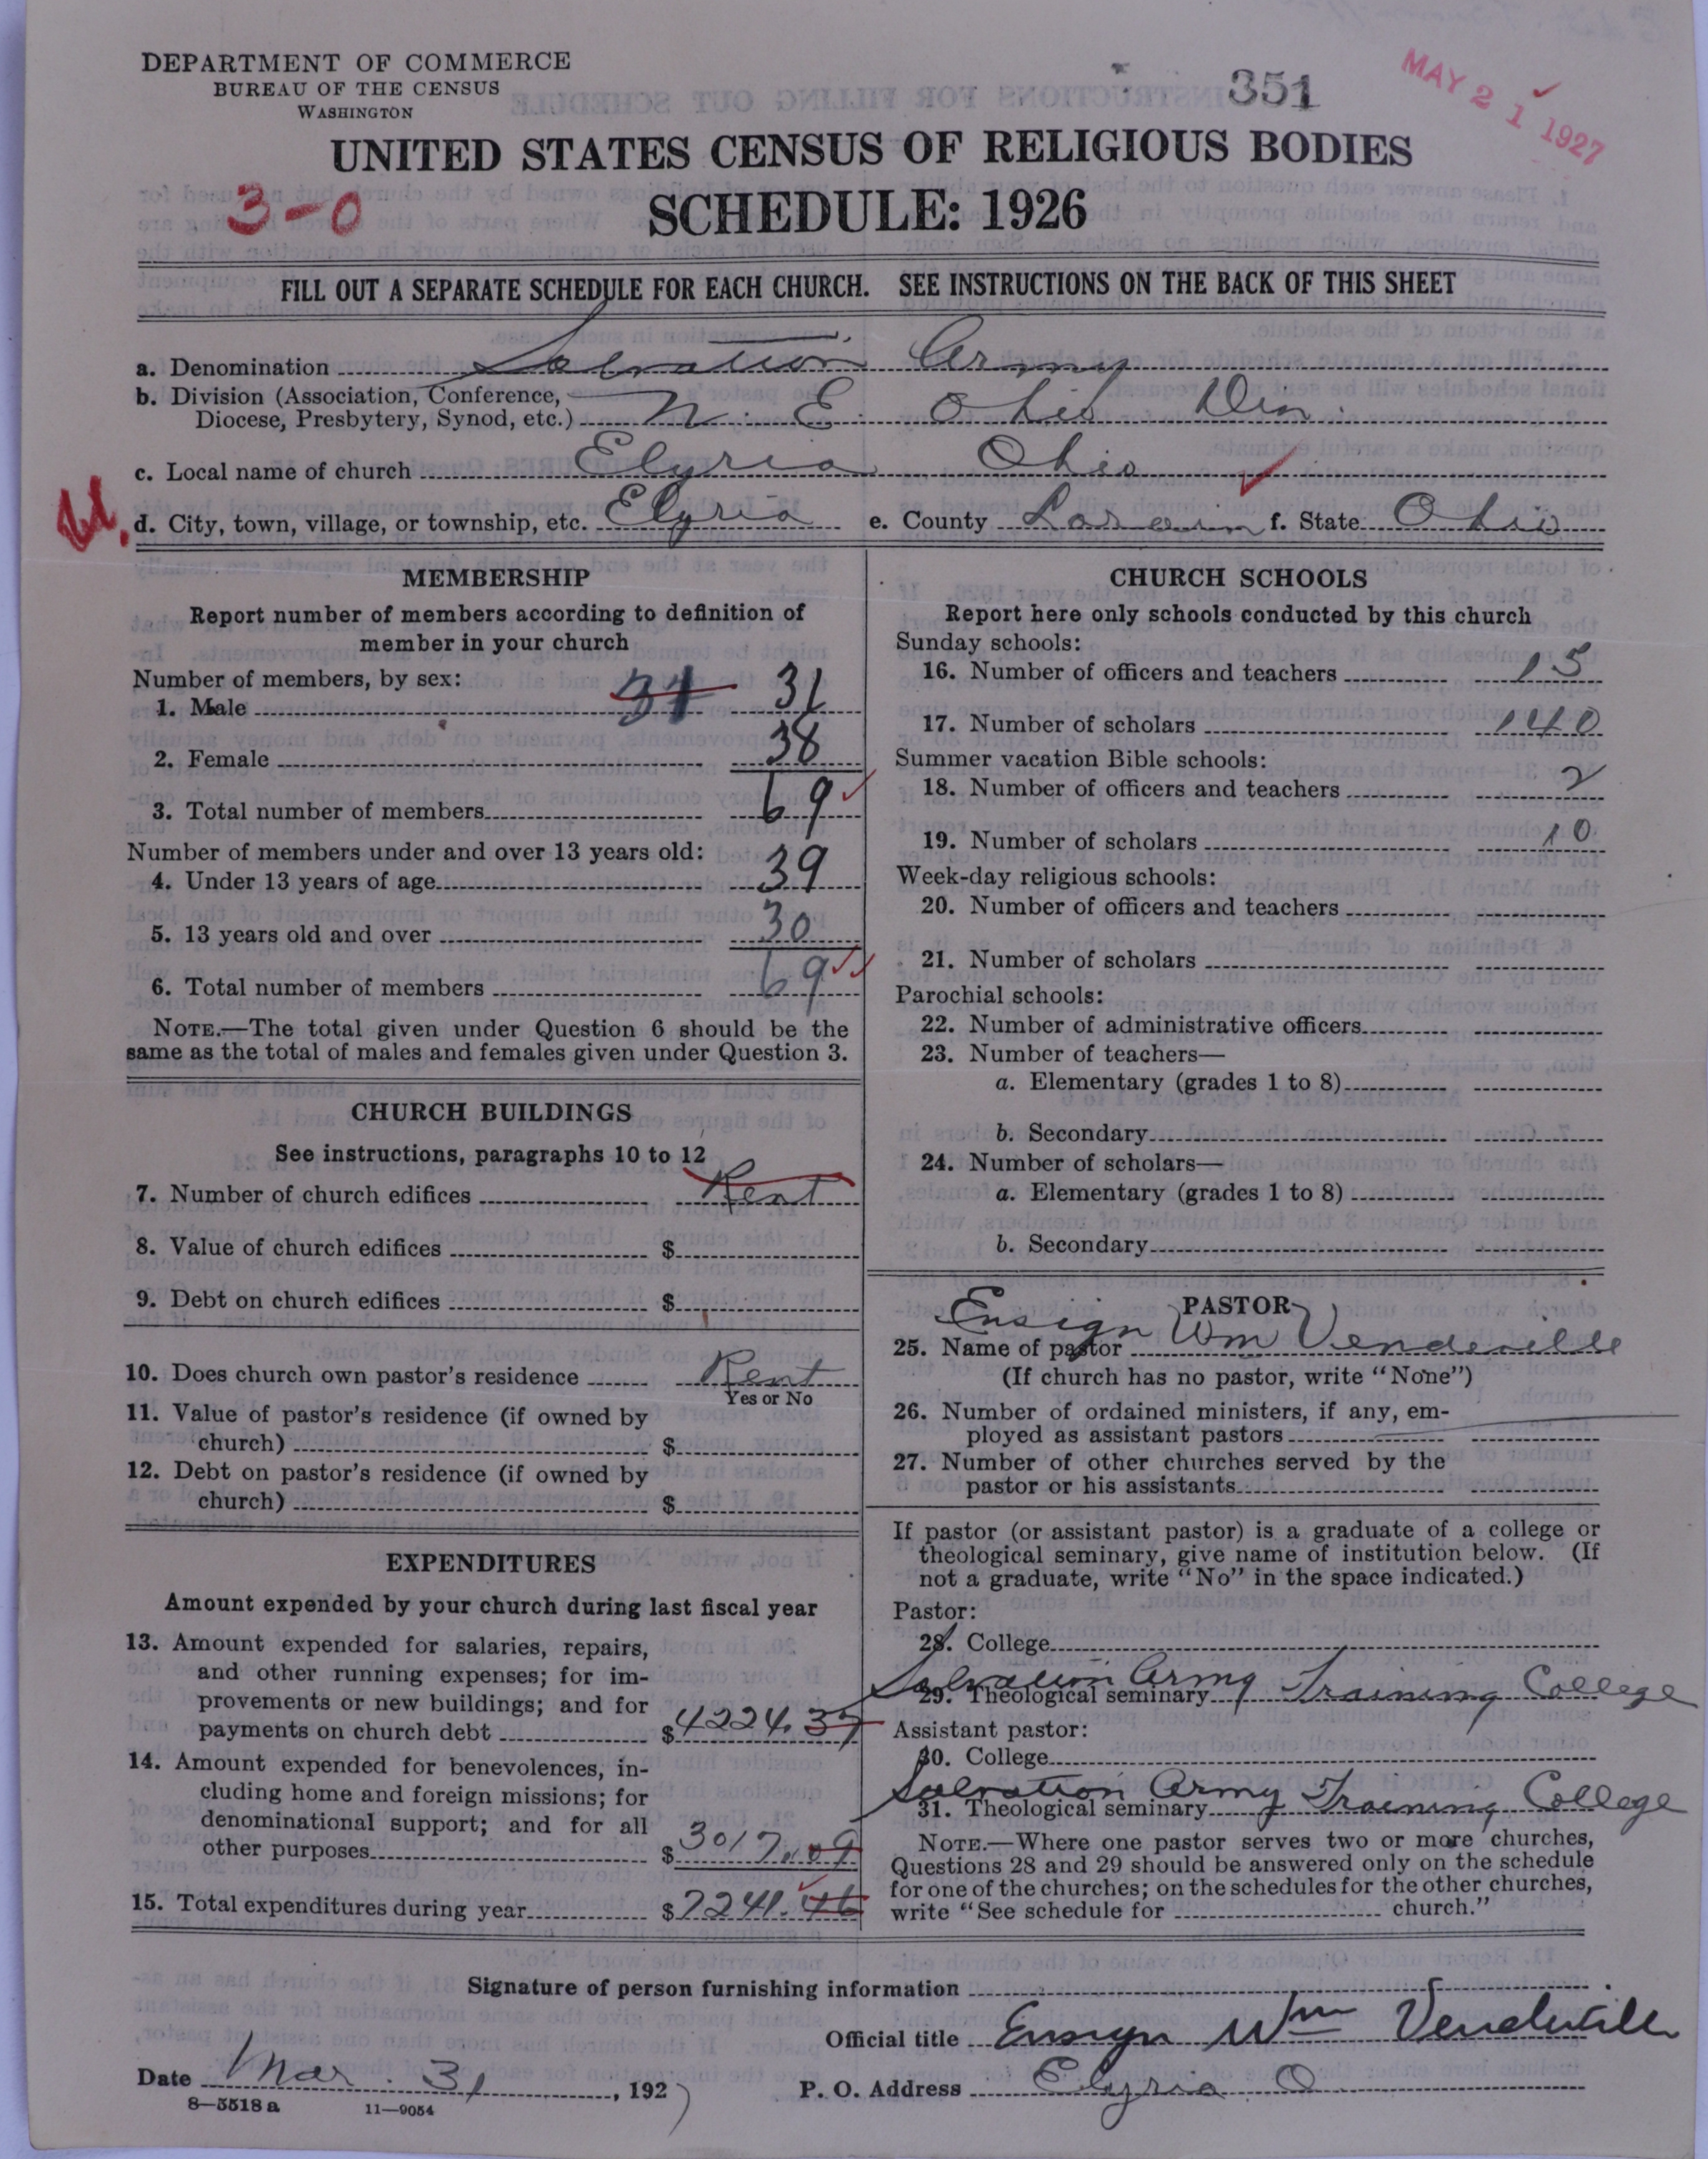 DEPARTMENT OF COMMERCE
BUREAU OF THE CENSUS
WASHINGTON
351
MAY 21 1927
UNITED STATES CENSUS OF RELIGIOUS BODIES
3-0
SCHEDULE: 1926
FILL OUT A SEPARATE SCHEDULE FOR EACH CHURCH. SEE INSTRUCTIONS ON THE BACK OF THIS SHEET
a. Denomination Salvation Army
b. Division (Association, Conference,
Diocese, Presbytery, Synod, etc.) N. E. Ohio Div.
c. Local name of church Elyria Ohio
d. City, town, village, or township, etc. Elyria e. County Lorain f. State Ohio
MEMBERSHIP
Report number of members according to definition of
member in your church
Number of members, by sex:
1. Male 31 31
2. Female 38
3. Total number of members 69
Number of members under and over 13 years old:
4. Under 13 years of age 39
5. 13 years old and over 30
6. Total number of members 69
NOTE.—The total given under Question 6 should be the
same as the total of males and females given under Question 3.
CHURCH BUILDINGS
See instructions, paragraphs 10 to 12
7. Number of church edifices Rent
8. Value of church edifices $
9. Debt on church edifices $
10. Does church own pastor's residence Rent
Yes or No
11. Value of pastor's residence (if owned by
church) $
12. Debt on pastor's residence (if owned by
church) $
EXPENDITURES
Amount expended by your church during last fiscal year
13. Amount expended for salaries, repairs,
and other running expenses; for im-
provements or new buildings; and for
payments on church debt $4224.37
14. Amount expended for benevolences, in-
cluding home and foreign missions; for
denominational support; and for all
other purposes $3017.09
15. Total expenditures during year $7241.46
CHURCH SCHOOLS
Report here only schools conducted by this church
Sunday schools:
16. Number of officers and teachers 15
17. Number of scholars 140
Summer vacation Bible schools:
18. Number of officers and teachers 2
19. Number of scholars 10
Week-day religious schools:
20. Number of officers and teachers
21. Number of scholars
Parochial schools:
22. Number of administrative officers
23. Number of teachers—
a. Elementary (grades 1 to 8)
b. Secondary
24. Number of scholars—
a. Elementary (grades 1 to 8)
b. Secondary
PASTOR
25. Name of pastor Ensign Wm Vendeville
(If church has no pastor, write "None")
26. Number of ordained ministers, if any, em-
ployed as assistant pastors
27. Number of other churches served by the
pastor or his assistants
If pastor (or assistant pastor) is a graduate of a college or
theological seminary, give name of institution below. (If
not a graduate, write "No" in the space indicated.)
Pastor:
28. College
29. Theological seminary Salvation Army Training College
Assistant pastor:
30. College
31. Theological seminary Salvation Army Training College
NOTE.—Where one pastor serves two or more churches,
Questions 28 and 29 should be answered only on the schedule
for one of the churches; on the schedules for the other churches,
write "See schedule for church."
Signature of person furnishing information
Official title Ensign Wm Vendeville
Date Mar. 31, 1927 P. O. Address Elyria O
8—5518 a 11—9054